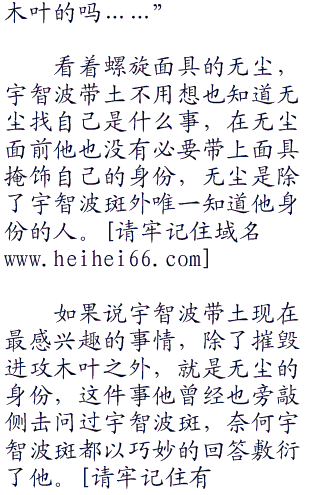 木叶的吗……”
看着螺旋面具的无尘，
宇智波带土不用想也知道无
尘找自己是什么事，在无尘
面前他也没有必要带上面具
掩饰自己的身份，无尘是除
了宇智波斑外唯一知道他身
份的人。[请牢记住域名
www.heihei66.com]
如果说宇智波带土现在
最感兴趣的事情，除了摧毁
进攻木叶之外，就是无尘的
身份，这件事他曾经也旁敲
侧击问过宇智波斑，奈何宇
智波斑都以巧妙的回答敷衍
了他。[请牢记住有